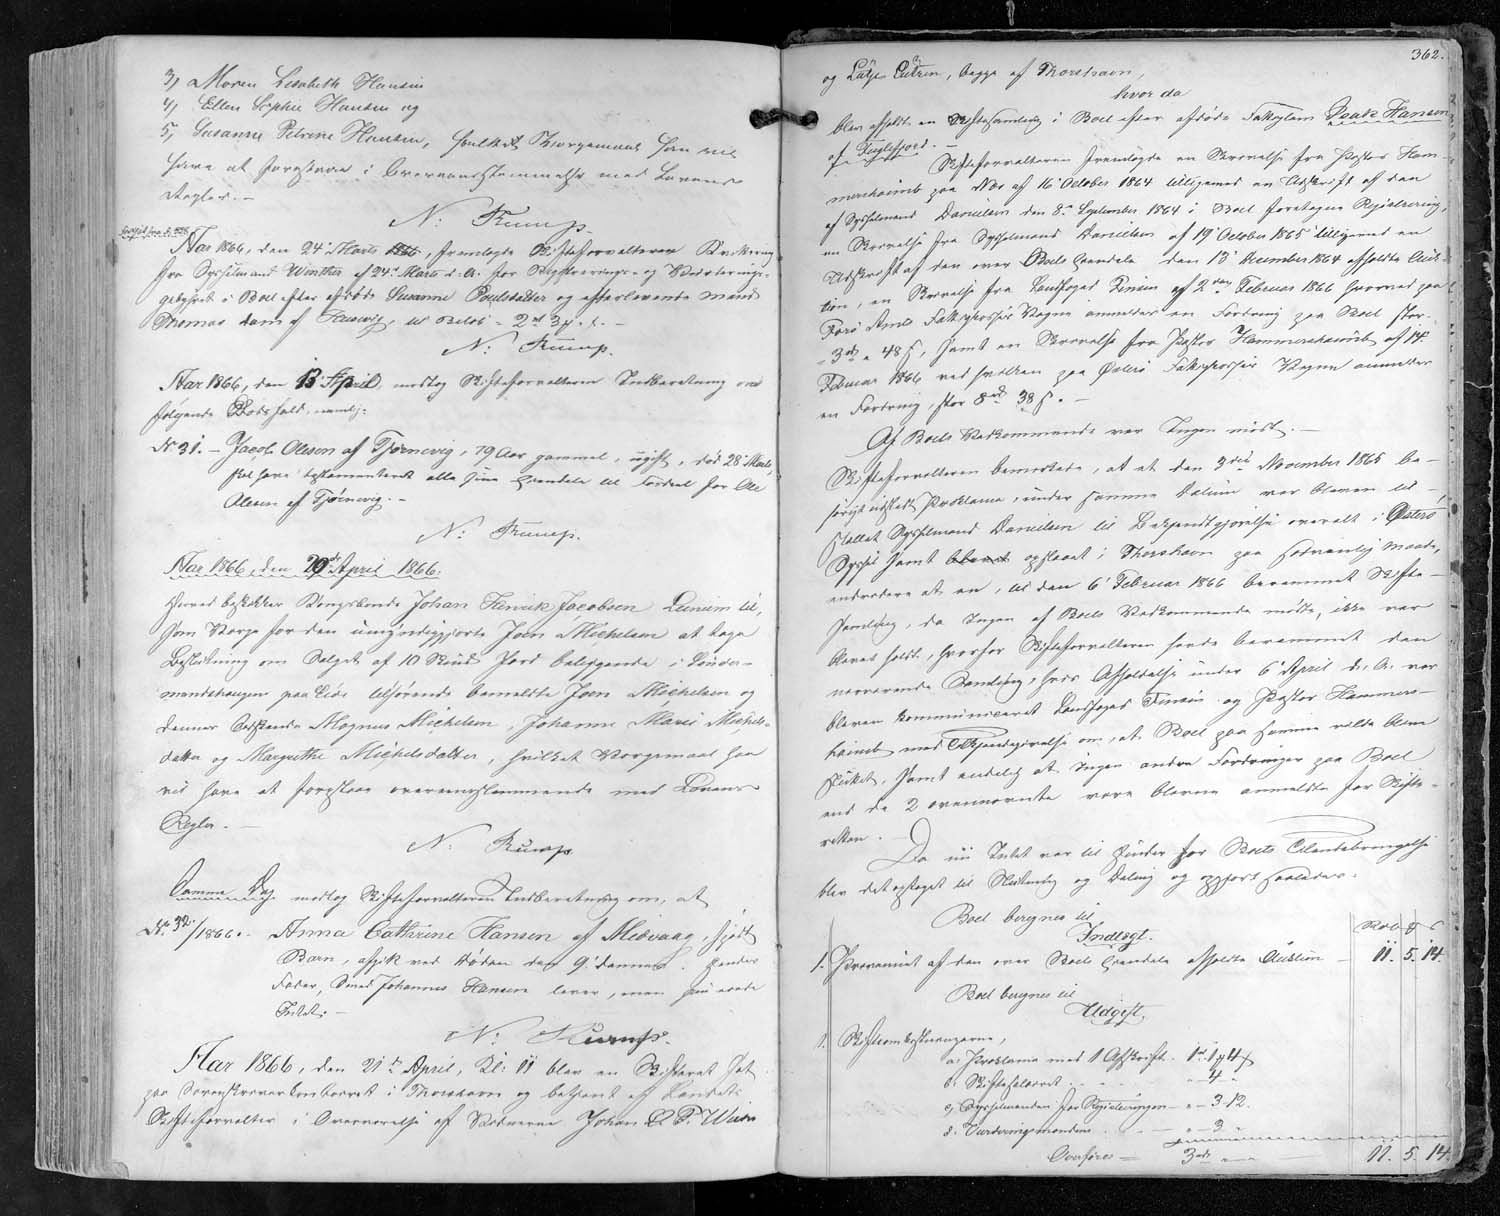 3, Maren Lisabeth Hansen
4, Ellen Sophie Hansen og
5, Susanne Petrine Hansen, hvilket Værgemaal han vil
have at forestaae i Overeensstemmelse med Lovens
Regler. —
N: Krump.
Aar 1866, den 24de Marts, fremlagde Skifteforvalteren Skrivelse
fra Sysselmand Winther af 24de Marts d. A. for Registrerings- og Vurderings-
gebyhret i Boet efter afdøde Susanne Poulsdatter og efterlevende Mand
Thomas, til Beløb 2rd 34 s. —
N: Krump.
Aar 1866, den 13 April, modtog Skifteforvalteren Indberetning om
følgende Dødsfald, nemlig:
No 31. — Jacob Olesen af Tjørnevig, 79 Aar gammel, ugift, død 28 Marts,
skal have testamenteret alle sine Eiendele til Fordeel for Ole
Olesen af Tjørnevig. —
N: Krump.
Aar 1866, den 20de April 1866.
Herved beskikkes Kongsbonde Johan Henrik Jacobsen til,
som Værge for den umyndiggjorte Joen Michelsen at tage
Beslutning om Salget af 10 Skind Jord beliggende i Sønder-
mandshaugen paa Eide tilhørende bemeldte Joen Michelsen og
dennes Sødskende Magnus Michelsen, Johanne Marie Michels-
datter og Margrethe Michelsdatter, hvilket Værgemaal han
vil have at forestaae overeensstemmende med Lovens
Regler. —
N: Krump
Samme Dag modtog Skifteforvalteren Indberetning om, at
No 32/1866. Anna Cathrine Hansen af Midvaag, spædt
Barn, afgik ved Døden den 9de dennes. Hendes
Fader, Smed Johannes Hansen lever, men hun eiede
Intet. —
N: Krump.
Aar 1866, den 21de April, Kl: 11 blev en Skifteret sat
paa Sorenskriverkontoret i Thorshavn og betjent af Landets
Skifteforvalter i Overværelse af Vidnerne Johan C. P. Weihe
362.
og Lütje Lützen, begge af Thorshavn,
hvor da
blev afholdt en Skiftesamling i Boet efter afdøde Fattiglem Hansen
af Fuglefjord. —
Skifteforvalteren fremlagde en Skrivelse fra Pastor Ham-
mershaimb paa Næs af 16 October 1864 tilligemed en Udskrift af den
af Sysselmand Danielsen den 8de September 1864 i Boet foretagne Registrering,
en Skrivelse fra Sysselmand Danielsen af 19 October 1865 tilligemed en
Udskrift af den over Boets Eiendele den 13 December 1864 afholdte Auk-
tion, en Skrivelse fra Landfoged Finsen af 2den Februar 1866 hvorved paa
Færø Amts Fattigkasses Vegne anmeldes en Fordring paa Boet stor
3rd 48 s, samt en Skrivelse fra Pastor Hammershaimb af 14
Februar 1866 ved hvilken paa Østerø Fattigkasses Vegne anmeldes
en Fordring, stor 8rd 38 s. —
Af Boets Vedkommende var Ingen mødt. —
Skifteforvalteren bemærkede, at et den 3die November 1865 be-
hørigt udstedt Proklama, under samme Datum var bleven til-
stillet Sysselmand Danielsen til Bekjendtgjørelse overalt i Østerø
Syssel samt opslaaet i Thorshavn paa sædvanlig Maade,
endvidere at en, til den 6 Februar 1866 berammet Skifte-
samling, da Ingen af Boets Vedkommende mødte, ikke var
bleven holdt, hvorfor Skifteforvalteren havde berammet den
nærværende Samling, hvis Afholdelse under 6 April d. A. var
bleven kommuniceret Landfoged Finsen og Pastor Hammers-
haimb med Tilkjendegivelse om, at Boet paa samme vilde blive
sluttet, samt endelig at Ingen andre Fordringer paa Boet
end de 2 ovennævnte vare blevne anmeldte for Skifte-
retten. —
Da nu Intet var til Hinder for Boets Tilendebringelse
blev det optaget til Slutning og Deling og opgjort saaledes:
Boet beregnes til
Indtægt.
Rdl ƶ s
1. Provenuet af den over Boets Eiendele afholdte Auktion — 11. 5. 14.
Boet beregnes til
Udgift.
1. Skifteomkostningerne,
a. Proklama med 1 Afskrift 1rd 1 ƶ 4 s
b. Skiftesalairet „ 4 „
c. Sysselmanden for Registreringen — „ — 3 12.
d. Vurderingsmændene — „ — 3 „
Overføres — 3rd „ — „ — 11. 5. 14.